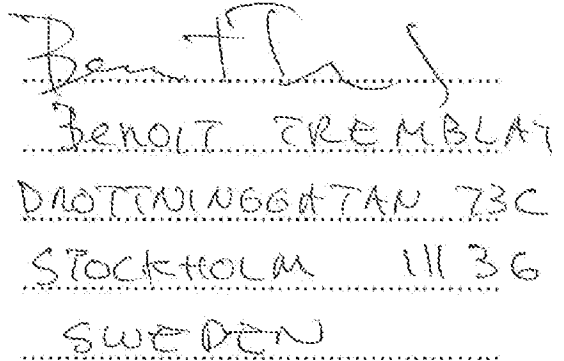 BENOIT TREMBLAY
DROTTNINGGATAN 73C
STOCKHOLM 111 36
SWEDEN